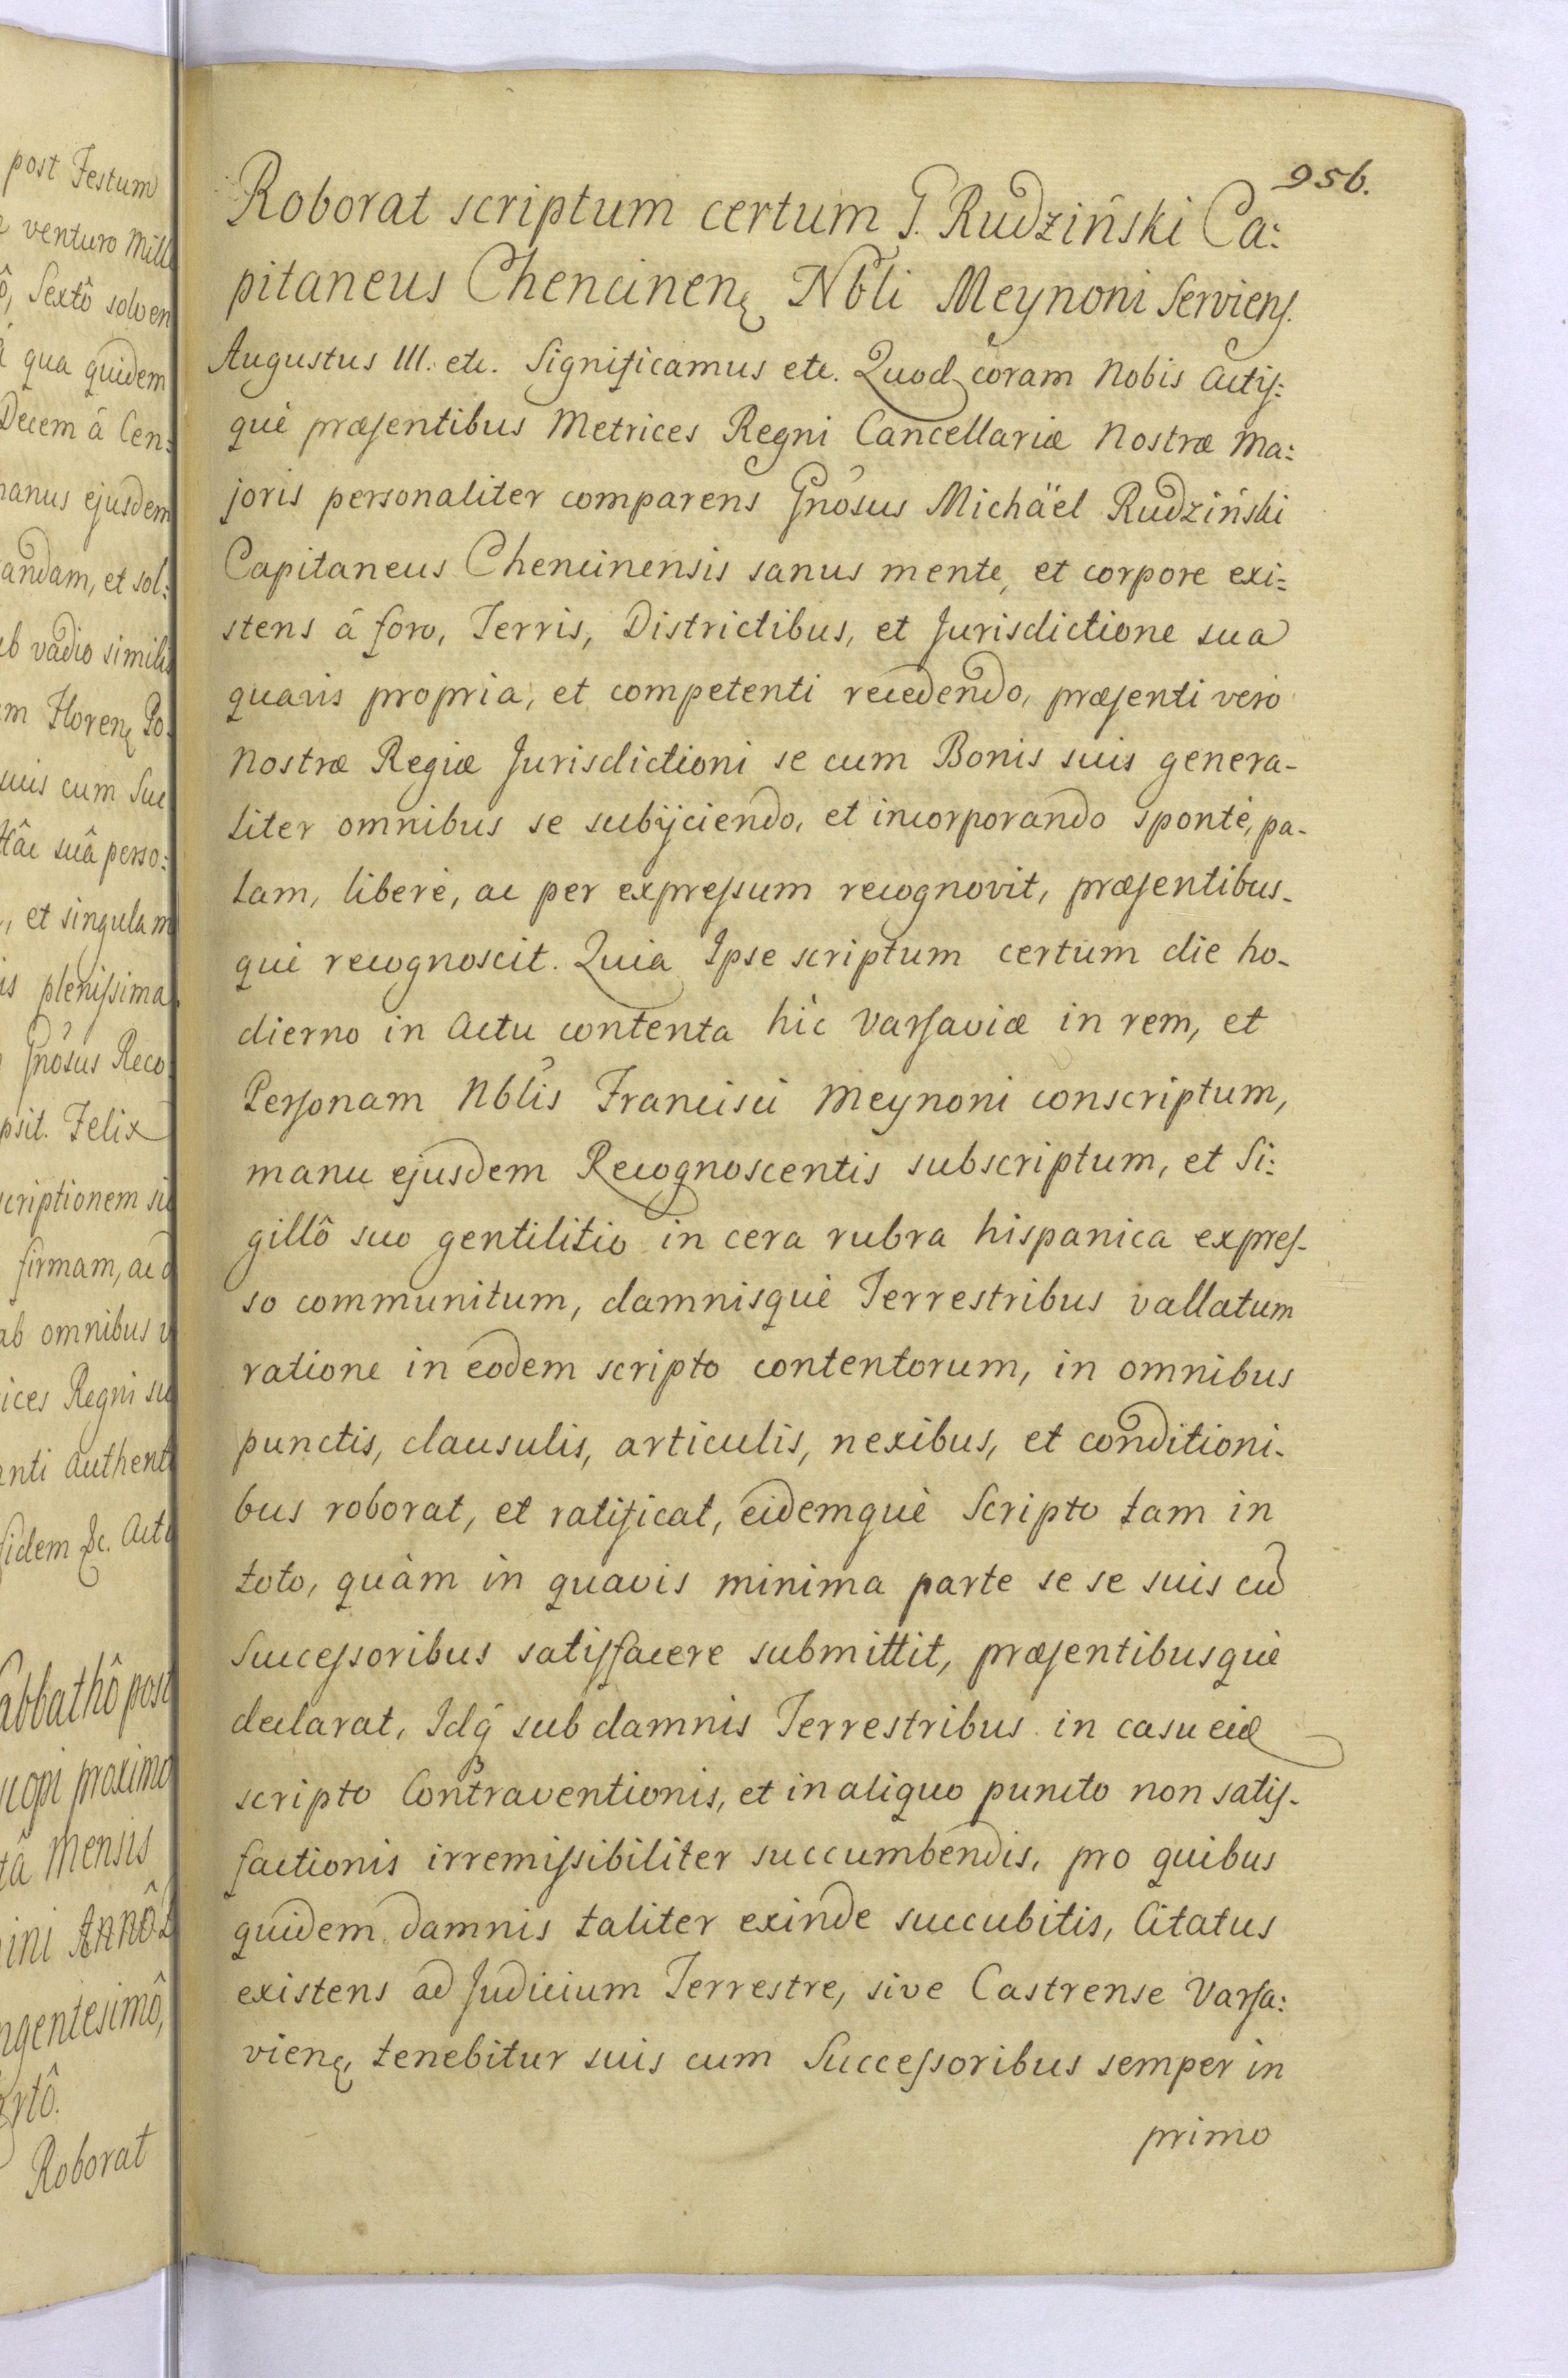 956.
Roborat scriptum certum G. Rudziński Ca:
pitaneus Chencinen. Nbli Meynoni Serviens.
Augustus III. etc. Significamus etc. Quod coram Nobis Actis:
què præsentibus Metrices Regni Cancellariæ Nostræ Ma:
joris personaliter comparens Gnosus Michäel Rudziński
Capitaneus Chencinensis sanus mente, et corpore exi:
stens â foro, Terris, Districtibus, et Jurisdictione sua
quavis propria, et competenti recedendo, præsenti verò
Nostræ Regiæ Jurisdictioni se cum Bonis suis genera-
liter omnibus se subÿciendo, et incorporando spontè, pa-
lam, liberè, ac per expressum recognovit, præsentibus-
què recognoscit. Quia Ipse scriptum certum die ho-
dierno in Actu contenta hìc Varsaviæ in rem, et
Personam Nblis Francisci Meynoni conscriptum,
manu ejusdem Recognoscentis subscriptum, et Si:
gillô suo gentilitio in cera rubra hispanica expres-
so communitum, damnisquè Terrestribus vallatum
ratione in eodem scripto contentorum, in omnibus
punctis, clausulis, articulis, nexibus, et conditioni-
bus roborat, et ratificat, eidemquè Scripto tam in
toto, quàm in quavis minima parte se se suis cũ
Successoribus satisfacere submittit, præsentibusquè
declarat, Idq́ sub damnis Terrestribus in casu eid
scripto Contraventionis, et in aliquo puncto non satis-
factionis irremissibiliter succumbendis, pro quibus
quidem damnis taliter exinde succubitis, Citatus
existens ad Judicium Terrestre, sive Castrense Varsa:
vien. tenebitur suis cum Successoribus semper in
primo
post Festum
venturo Mill
Sextô solven
â qua quidem
Decem â Cen:
manus ejusdem
andam, et sol:
vadio simili
Floren. Po
cum Suc
suâ perso:
et singulam
plenissima
Gnosus Reco
psit. Felix
criptionem
firmam, ac
ab omnibus
ices Regni su
anti Authent
fidem &c. Act
abbathô post
proximo
Mensis
Annô
ngentesimô,
Roborat